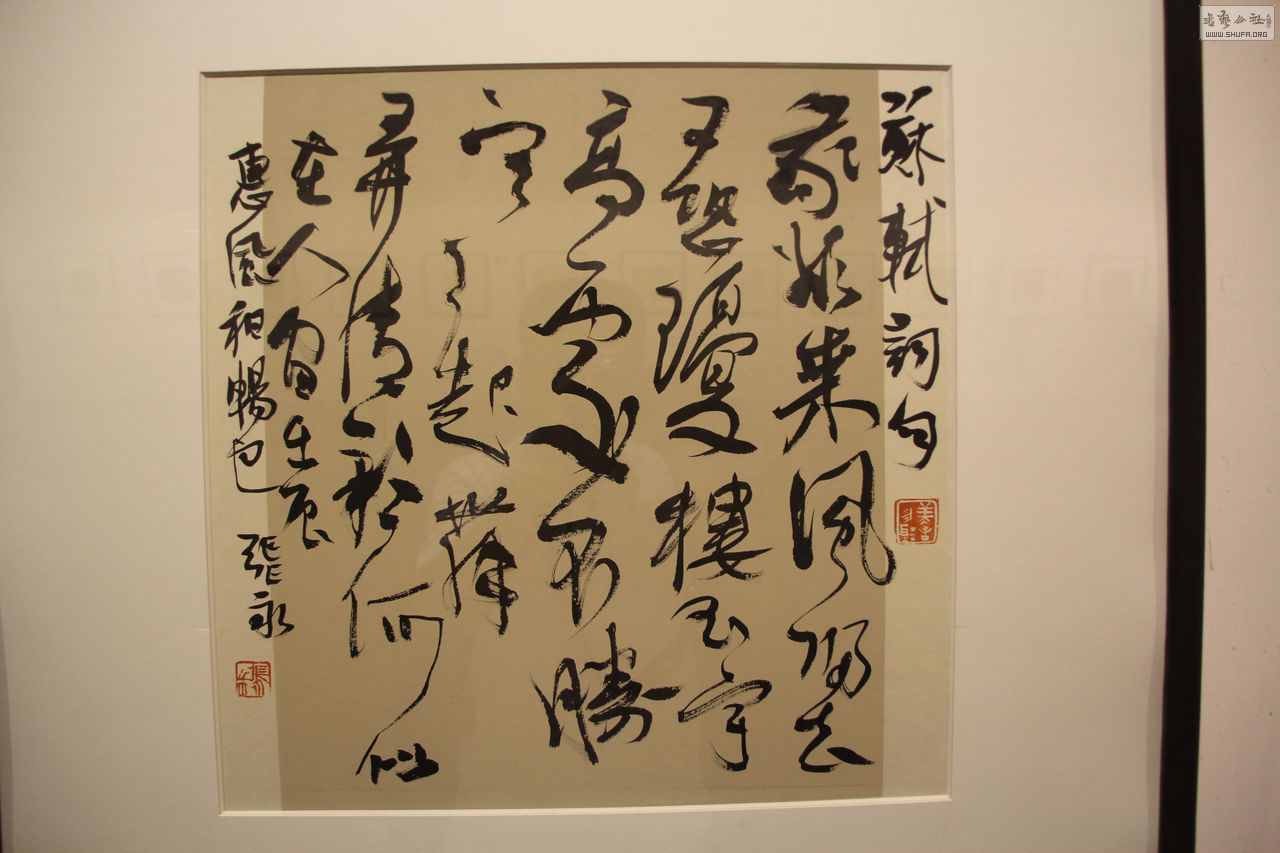 蘇軾詞句
我欲乘風歸去
又恐瓊樓玉宇
高處不勝
寒
起舞
弄清影何似
在人間壬辰
惠風和暢也 張永
書藝公社
WWW.SHUFA.ORG